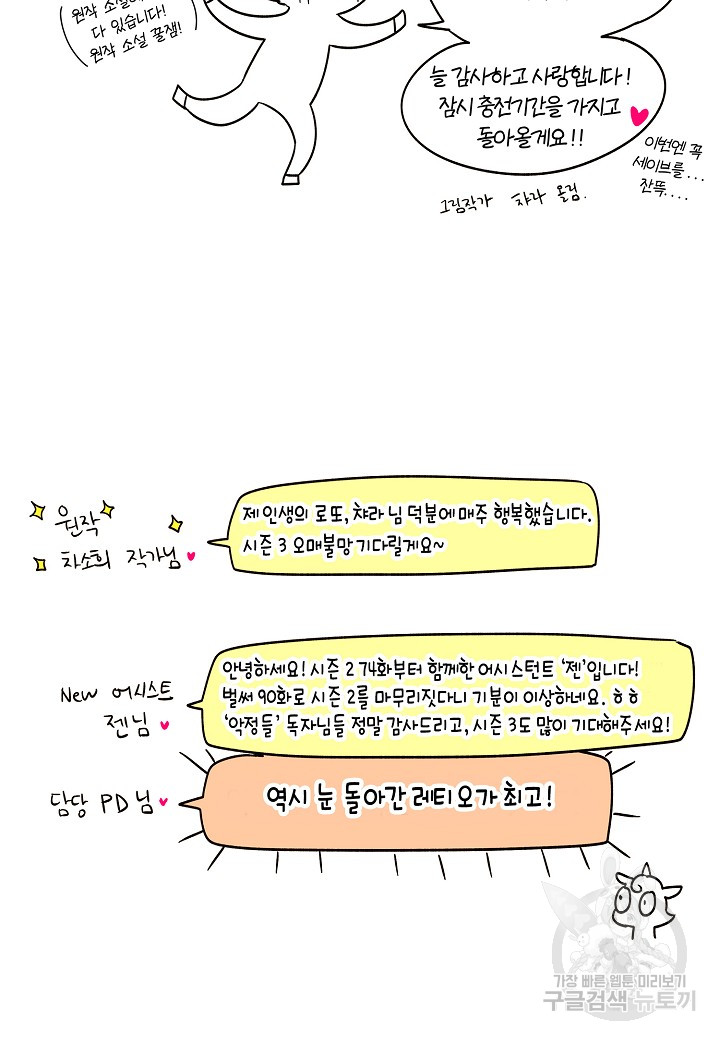 원작 소설에
다 있습니다!
원작 소설 꿀잼!
늘 감사하고 사랑합니다!
잠시 충전기간을 가지고
돌아올게요!!
이번엔 꼭
세이브를...
잔뜩....
그림작가 챠라 올림.
원작
차소희 작가님
제 인생의 로또, 챠라 님 덕분에 매주 행복했습니다.
시즌 3 오매불망 기다릴게요~
New 어시스트
젠님
안녕하세요! 시즌 2 74화부터 함께한 어시스턴트 '젠'입니다!
벌써 90화로 시즌 2를 마무리짓다니 기분이 이상하네요. ㅎㅎ
'악정들' 독자님들 정말 감사드리고, 시즌 3도 많이 기대해주세요!
담당 PD님
역시 눈 돌아간 레티오가 최고!
가장 빠른 웹툰 미리보기
구글검색 뉴토끼